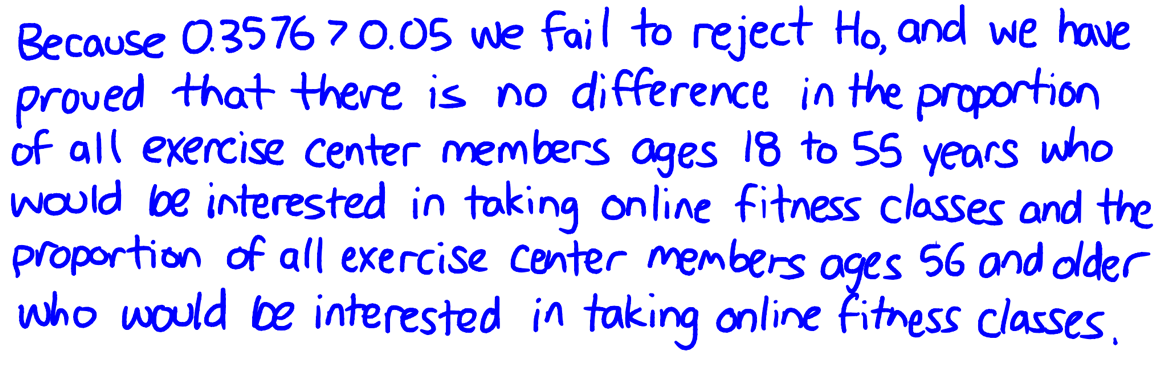 Because 0.3576 > 0.05 we fail to reject H₀, and we have
proved that there is no difference in the proportion
of all exercise center members ages 18 to 55 years who
would be interested in taking online fitness classes and the
proportion of all exercise center members ages 56 and older
who would be interested in taking online fitness classes.